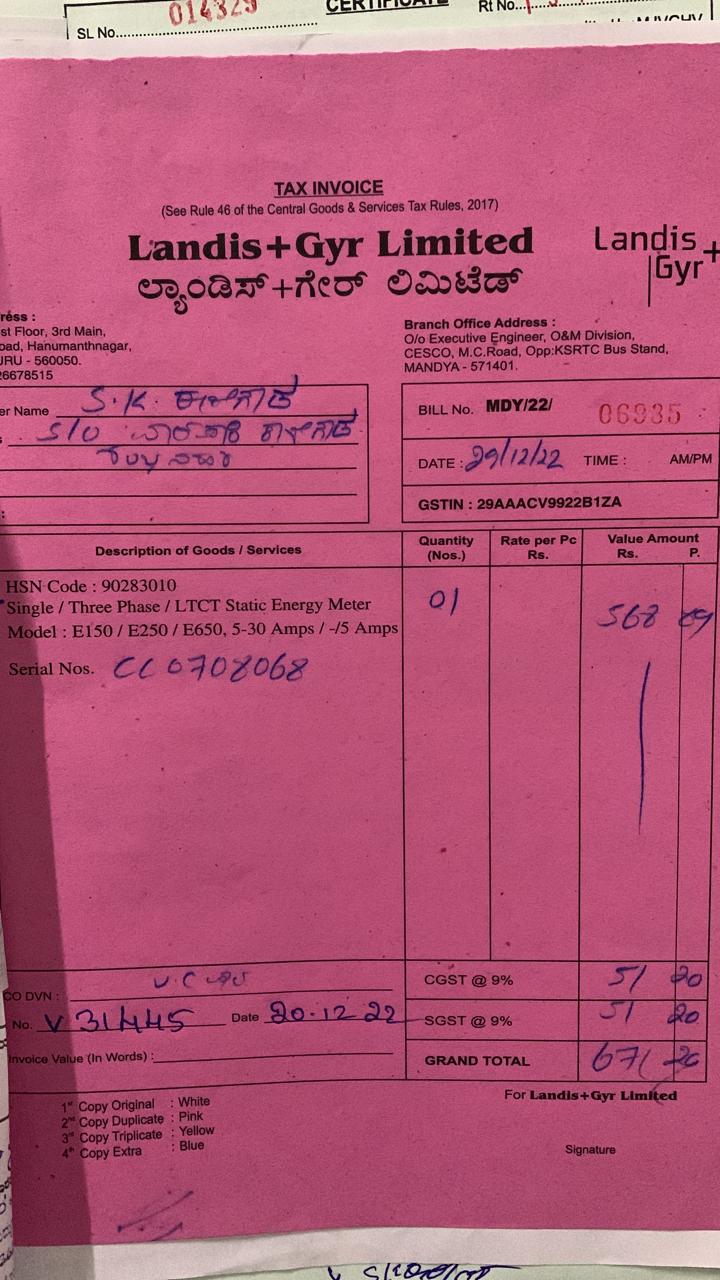 014329
CERTIFICATE
Rt No...
SL No.
TAX INVOICE
(See Rule 46 of the Central Goods & Services Tax Rules, 2017)
Landis+Gyr Limited
ಲ್ಯಾಂಡಿಸ್+ಗೇರ್ ಲಿಮಿಟೆಡ್
Landis
Gyr+
ress :
st Floor, 3rd Main,
oad, Hanumanthnagar,
URU - 560050.
6678515
Branch Office Address :
O/o Executive Engineer, O&M Division,
CESCO, M.C.Road, Opp:KSRTC Bus Stand,
MANDYA - 571401.
er Name S.K.
S/O
BILL No. MDY/22/ 06935
DATE : 29/12/22 TIME : AM/PM
GSTIN : 29AAACV9922B1ZA
Description of Goods / Services
Quantity (Nos.)
Rate per Pc Rs.
Value Amount Rs. P.
HSN Code : 90283010
Single / Three Phase / LTCT Static Energy Meter
Model : E150 / E250 / E650, 5-30 Amps / -/5 Amps
01
568
Serial Nos. CC0708068
CO DVN :
No. V 31445 Date 20.12.22
Invoice Value (In Words) :
CGST @ 9% 51 20
SGST @ 9% 51 20
GRAND TOTAL 671
1st Copy Original : White
2nd Copy Duplicate : Pink
3rd Copy Triplicate : Yellow
4th Copy Extra : Blue
For Landis+Gyr Limited
Signature